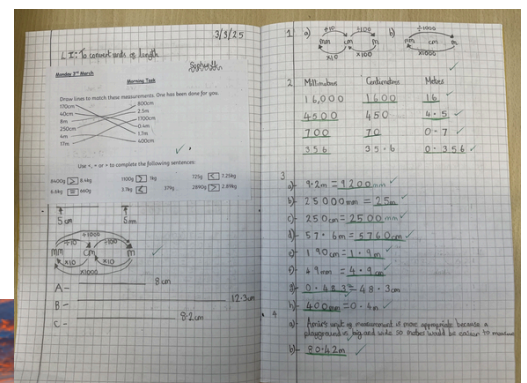 3/3/25
L.I: To convert units of length
Monday 3rd March
Morning Task
Draw lines to match these measurements. One has been done for you.
170cm 800cm
40cm 2.5m
8m 1700cm
250cm 0.4m
4m 1.7m
17m 400cm
Use <, > or = to complete the following sentences:
8400g > 8.4kg 1100g > 1kg 725g < 7.25kg
6.6kg 660g 3.7kg 370g 2890g > 2.89kg
5cm 6m
÷1000
÷10 ÷100
mm cm m
x10 x100
x1000
A- 8cm
B- 12.3cm
C- 8.2cm
1 a) ÷10 ÷100 b) ÷1000
mm cm m mm cm m
x10 x100
2 Millimetres Centimetres Metres
16,000 1600 16
4500 450 4.5
700 70 0.7
356 35.6 0.356
3
a)- 9.2m = 9200mm
b)- 25000mm = 25m
c)- 250cm = 2500mm
d)- 57.6m = 5760cm
e)- 190cm = 1.9m
f)- 49mm = 4.9cm
g)- 0.483 = 48.3cm
h)- 400mm = 0.4m
4
a)- unit of measurement is more appropriate because a
playground is big and wide so metres would be easier to
b)- 80.42m